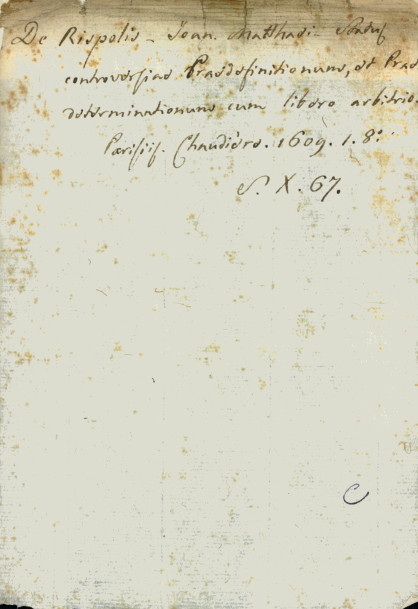 De Rispolis - Joan. Matthaei -
controversiae Praedefinitionum, et Prae
determinationum cum libero arbitrio.
Parisiis. Chaudiere. 1609. 1. 8.º
S. X. 67.
C